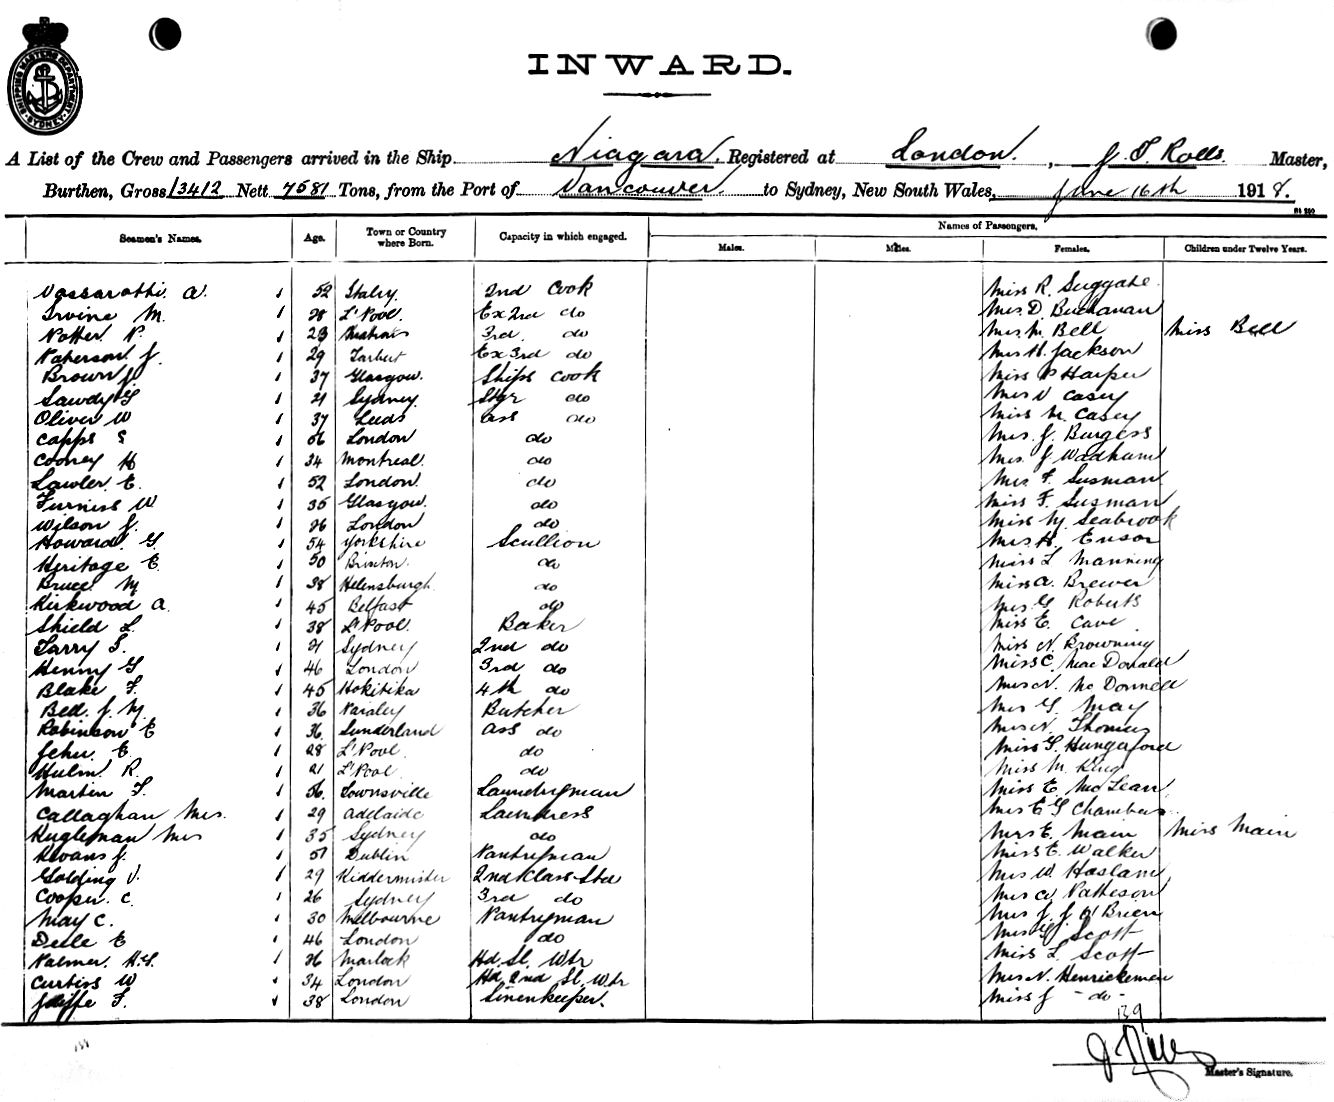 SHIPPING MASTERS DEPARTMENT SYDNEY
INWARD.
A List of the Crew and Passengers arrived in the Ship Niagara. Registered at London. , J. T. Rolls. Master,
Burthen, Gross 13412 Nett 7581 Tons, from the Port of Vancouver. to Sydney, New South Wales, June 16th 1918.
Seamen's Names. Age. Town or Country where Born. Capacity in which engaged. Names of Passengers.
Males. Males. Females. Children under Twelve Years.
Vassarotti. A. 1 52 Italy. 2nd Cook Miss R. Suggate
Irvine M. 1 28 L'Pool. Ex 2nd do Mrs D. Buchanan
Notter P. 1 23 3rd. do Mrs M. Bell Miss Bell
Paterson J. 1 29 Tarbert Ex 3rd do Mrs H. Jackson
Brown J 1 37 Glasgow. Ships Cook Miss P Harper
Sawdy G 1 21 Sydney. do Mrs V Casey
Oliver W 1 37 Leeds Ass do Miss M. Casey
Capps S 1 56 London do Mrs. J. Burgess
Cooney H 1 34 Montreal. do Mrs. J Wadham
Lawler E. 1 52 London. do Mrs F. Susman
Furniss W 1 35 Glasgow. do Miss F. Susman
Wilson J. 1 26 London do Miss M. Seabrook
Howard. G. 1 54 Yorkshire Scullion Mrs H. Ensor
Heritage E. 1 50 do Miss L Manning
Bruce M 1 38 Helensburgh do Miss A. Brewer
Kirkwood A. 1 45 Belfast do Mrs G Roberts
Shield L. 1 38 L'Pool. Baker Miss E. Cave
Tarry S. 1 21 Sydney 2nd do Miss N. Browning
Henny G 1 46 London 3rd do Miss C. Mac Donald
Blake F. 1 45 Hokitika 4th do Mrs N. Mc Donnell
Bell. J. M. 1 36 Paisley Butcher Mrs G. May
Robinson E 1 36 Sunderland Ass do Mrs N. Thomas
Jehu. E. 1 28 L'Pool. do Miss G. Hungerford
Hulm. R. 1 21 L'Pool. do Miss M. King
Martin F. 1 56 Townsville Laundryman Miss E. McLean
Callaghan Mrs. 1 29 Adelaide Laundress Mrs E G Chambers
Kugleman Mrs 1 35 Sydney do Mrs E. Main Miss Main
Kevans J. 1 51 Dublin Pantryman Miss E. Walker
Golding V. 1 29 Kidderminster 2nd Klass Std Mrs W. Haslam
Cooper. C. 1 26 Sydney 3rd do Mrs Patteson
May C. 1 30 Melbourne Pantryman Mrs J. J. O'Brien
Deele E 1 46 London do Mrs G. Scott
Palmer. H.G. 1 26 Hd. Sl. Wtr Miss L. Scott
Curtiss W 1 34 London Hd. 2nd Sl. Wtr Mrs N. Henrickeman
F. 1 38 London Linenkeeper. Miss J - do -
139
J T Rolls
Master's Signature.